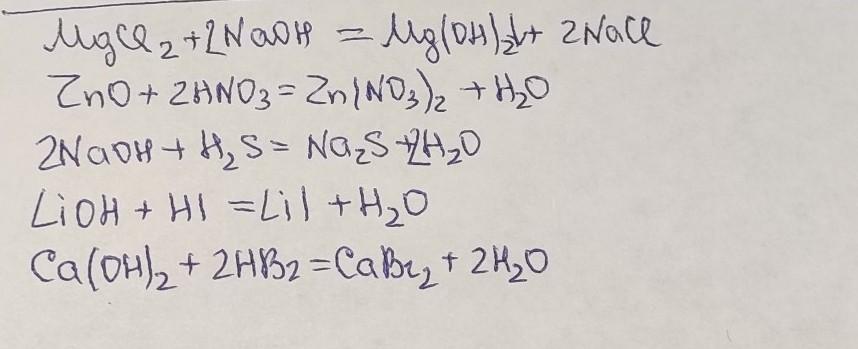 MgCl₂ + 2NaOH = Mg(OH)₂↓ + 2NaCl
ZnO + 2HNO₃ = Zn(NO₃)₂ + H₂O
2NaOH + H₂S = Na₂S + 2H₂O
LiOH + HI = LiI + H₂O
Ca(OH)₂ + 2HBr = CaBr₂ + 2H₂O